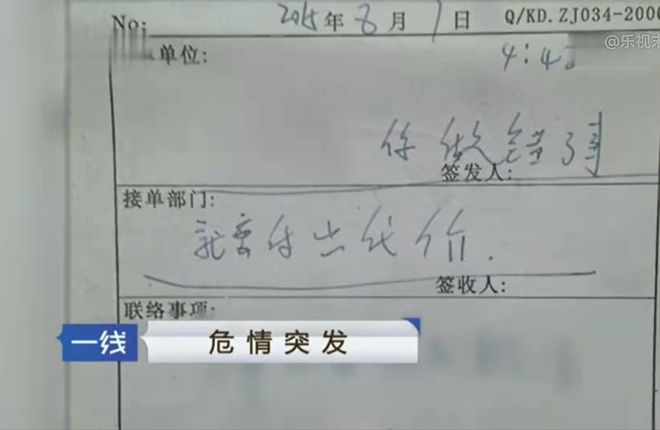 No: 2015年8月1日 Q/KD.ZJ034-2000
@乐视
单位: 4:4
你做错事
签发人:
接单部门:
就要付出代价.
签收人:
联络事项:
一线 危情突发